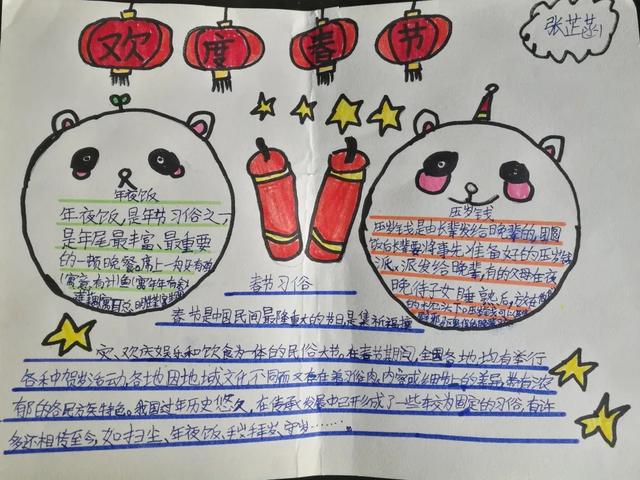 欢度春节
张芷菡
年夜饭
年夜饭,是年节习俗之一,
是年尾最丰富、最重要
的一顿晚餐。席上一般有
压岁钱
压岁钱是由长辈发给晚辈的,团圆
饭后长辈要将事先准备好的压岁钱
派发给晚辈,有的父母在夜
晚待子女睡熟后,放在
春节习俗
春节是中国民间最隆重大的节日是集祈福攘
灾、欢庆娱乐和饮食为一体的民俗大书。在春节期间,全国各地均有举行
各种贺岁活动,各地因地域文化不同而又存在着习俗内容或细节上的差异,带有浓
郁的各民族特色。我国过年历史悠久,在传承发展中已形成了一些较为固定的习俗,有许
多还相传至今,如扫尘、年夜饭、拜岁、守岁……